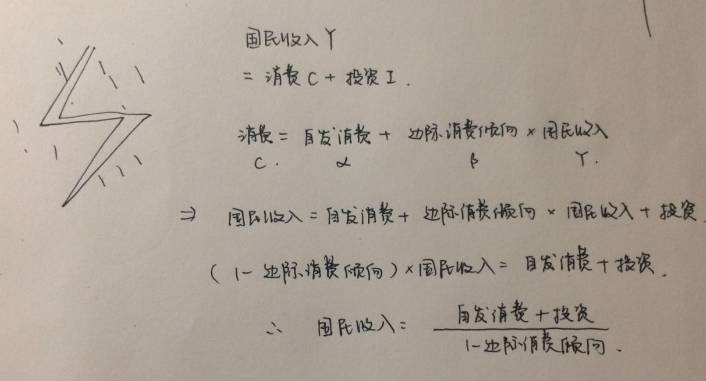 国民收入Y
= 消费C + 投资I.
消费 = 自发消费 + 边际消费倾向 × 国民收入
C. α β Y.
⇒ 国民收入 = 自发消费 + 边际消费倾向 × 国民收入 + 投资
(1 - 边际消费倾向) × 国民收入 = 自发消费 + 投资.
∴ 国民收入 = 自发消费 + 投资
1 - 边际消费倾向.